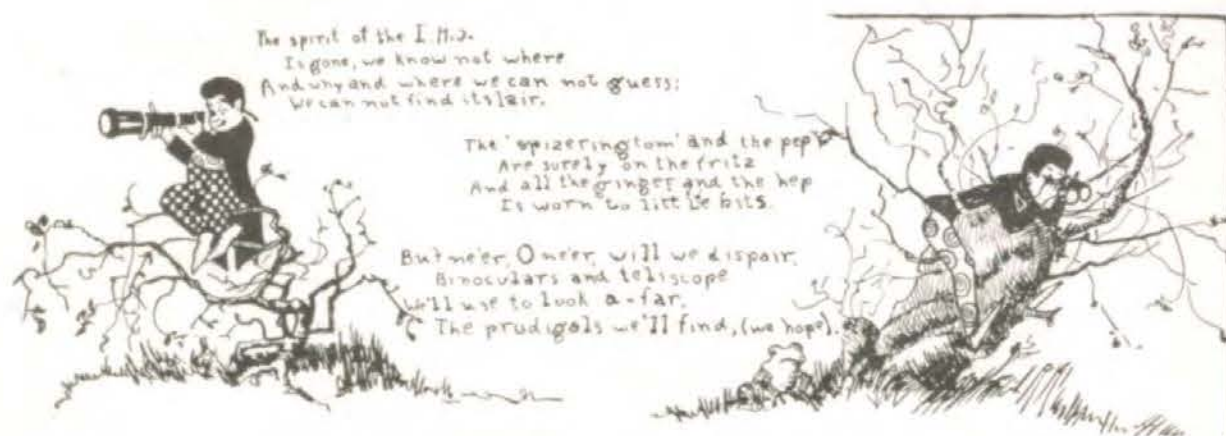 The spirit of the I.H.S.
Is gone, we know not where
And why and where we can not guess;
We can not find its lair.
The 'spizeringtom' and the pep
Are surely on the fritz
And all the ginger and the hep
Is worn to little bits.
But ne'er, O ne'er, will we dispair,
Binoculars and teliscope
We'll use to look a-far.
The prudigals we'll find, (we hope).